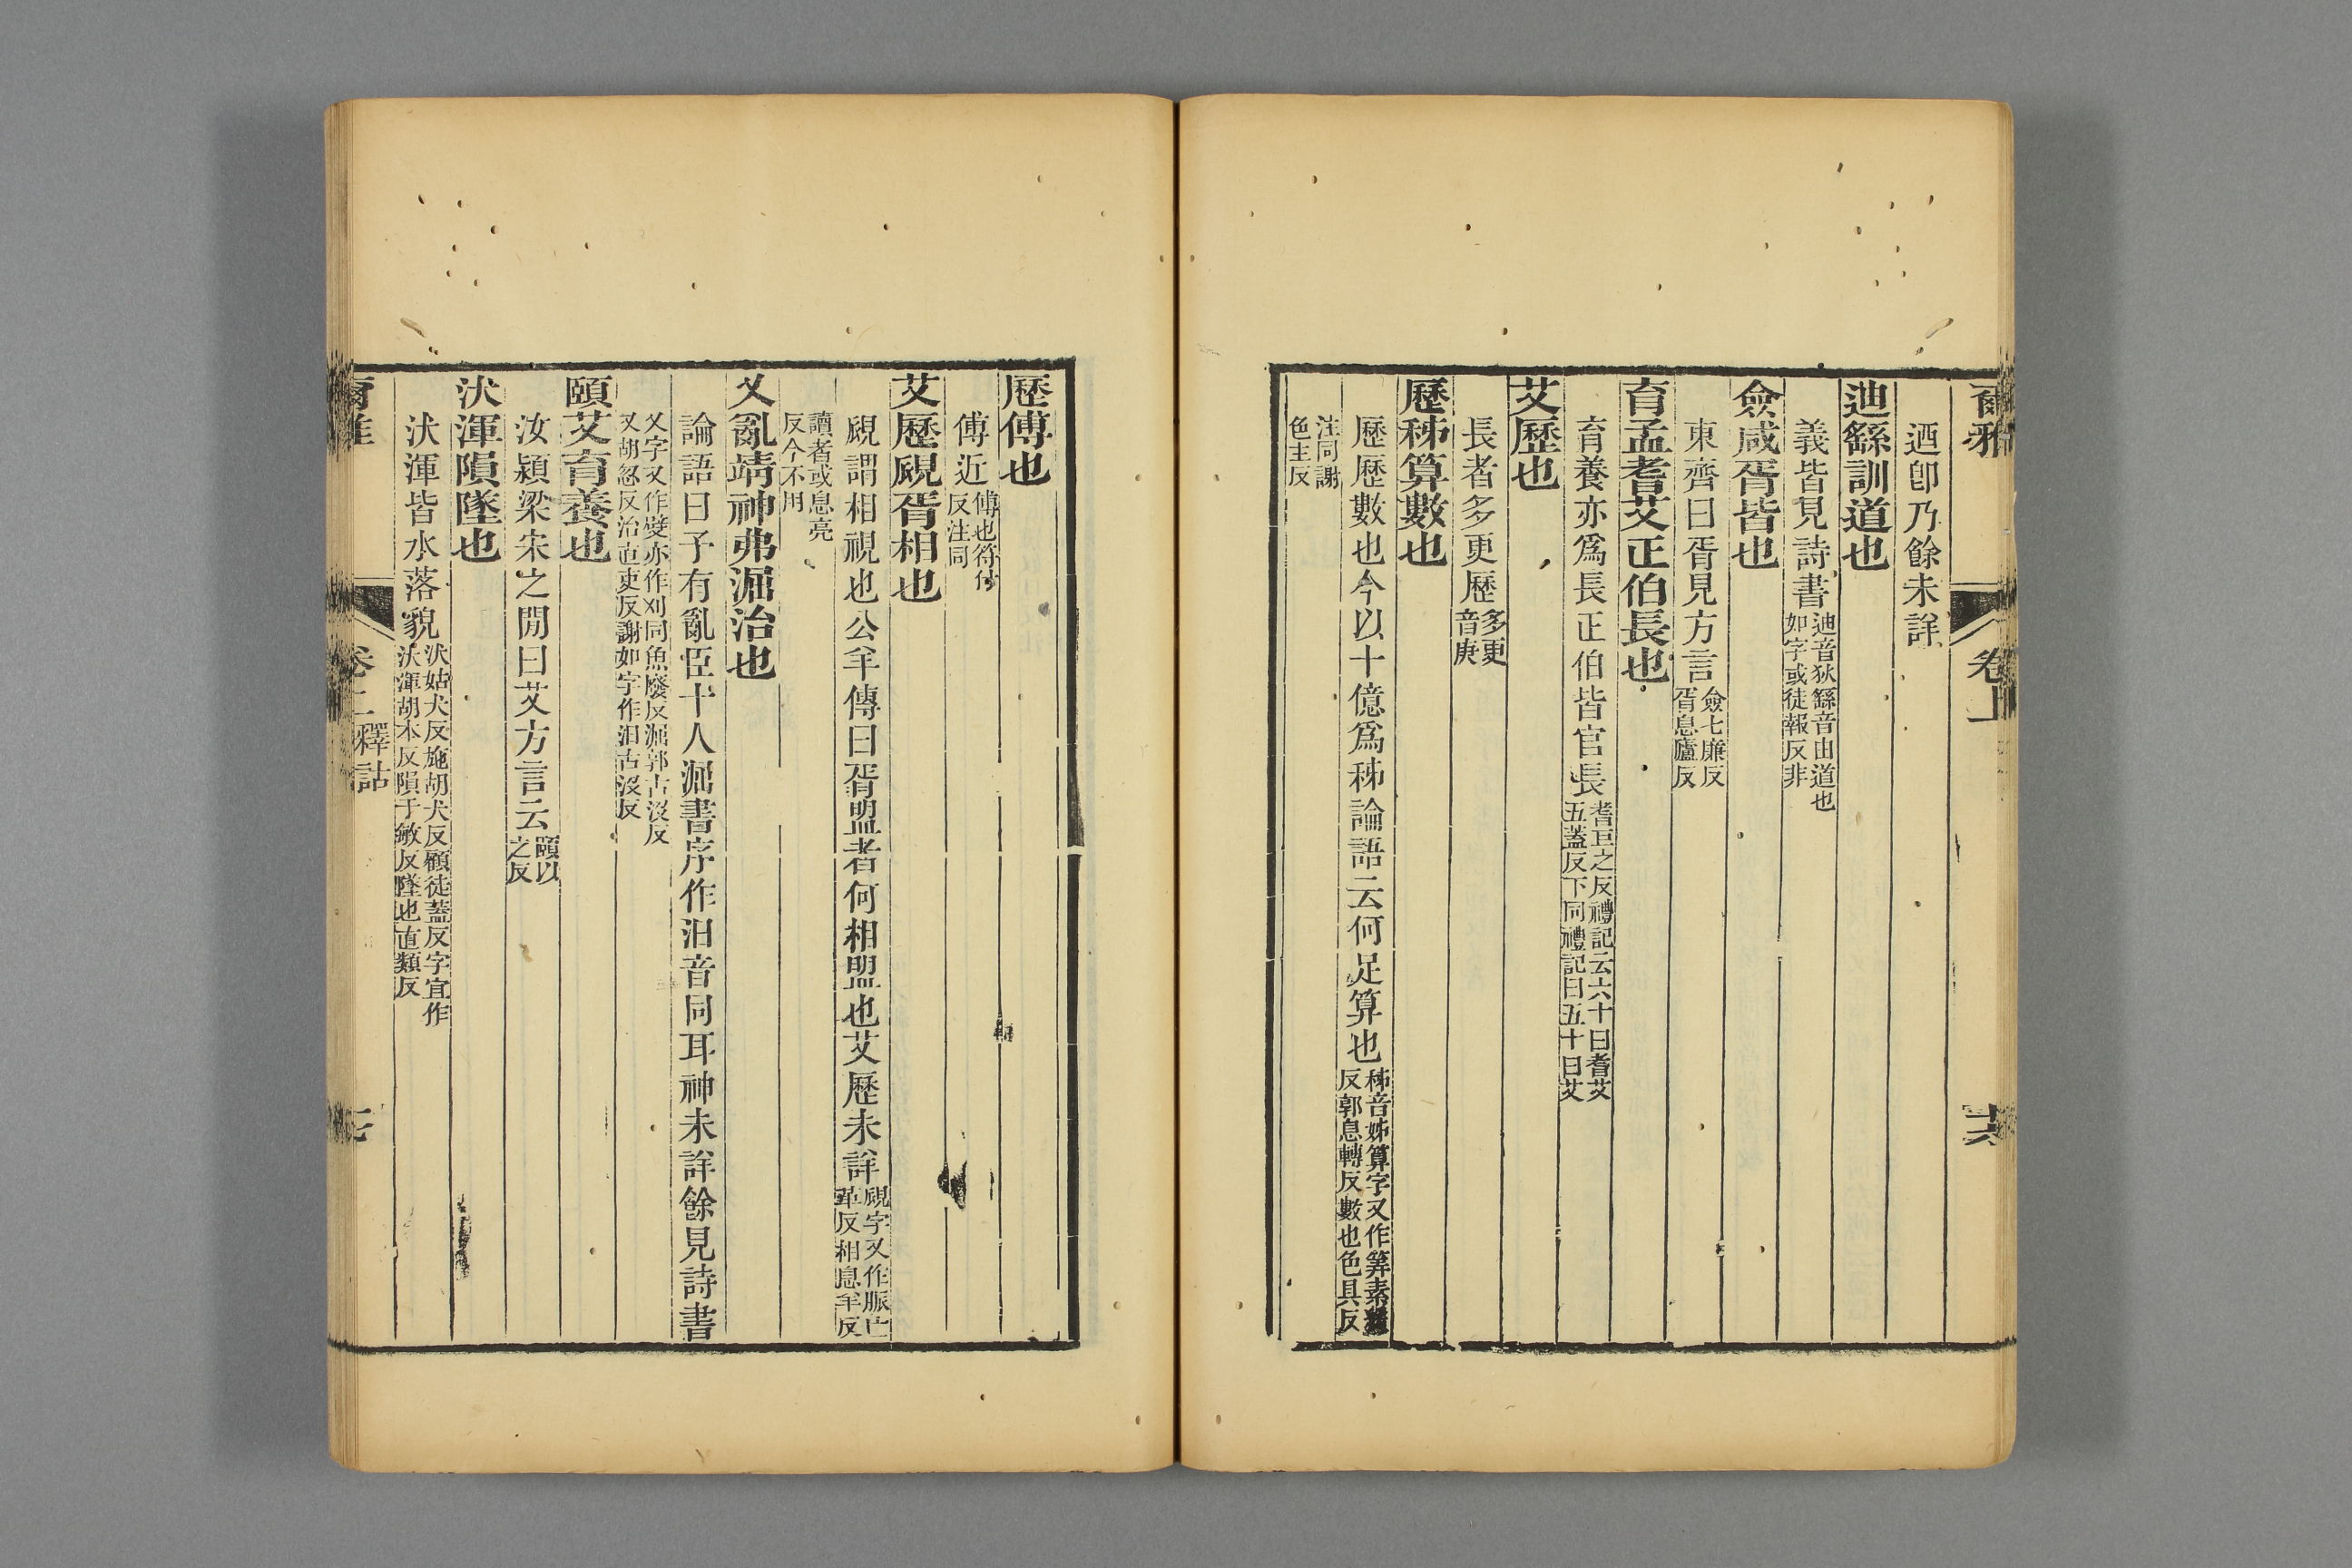 爾雅 卷上 十六
迺卽乃餘未詳
迪繇訓道也
義皆見詩書迪音狄繇音由道也
如字或徒報反非
僉咸胥皆也
東齊曰胥見方言僉七廉反
胥息廬反
育孟耆艾正伯長也
育養亦爲長正伯皆官長耆巨之反禮記云六十曰耆艾
五蓋反下同禮記曰五十曰艾
艾歷也
長者多更歷多更
音庚
歷秭算數也
歷歷數也今以十億爲秭論語云何足算也秭音姊算字又作筭素
反郭息轉反數也色具反
注同謝
色主反
歷傅也
傅近傅也符付
反注同
艾歷覛胥相也
覛謂相視也公羊傳曰胥盟者何相盟也艾歷未詳覛字又作脈亡
革反相息羊反
讀者或息亮
反今不用
乂亂靖神弗淈治也
論語曰予有亂臣十人淈書序作汩音同耳神未詳餘見詩書
乂字又作嬖亦作刈同魚廢反淈郭古沒反
又胡忽反治直吏反謝如字作汩古沒反
頤艾育養也
汝潁梁宋之閒曰艾方言云頤以
之反
汱渾隕墜也
汱渾皆水落貌汱姑犬反施胡犬反顧徒蓋反字宜作
汱渾胡本反隕于敏反墜也直類反
爾雅 卷上 釋詁 十七